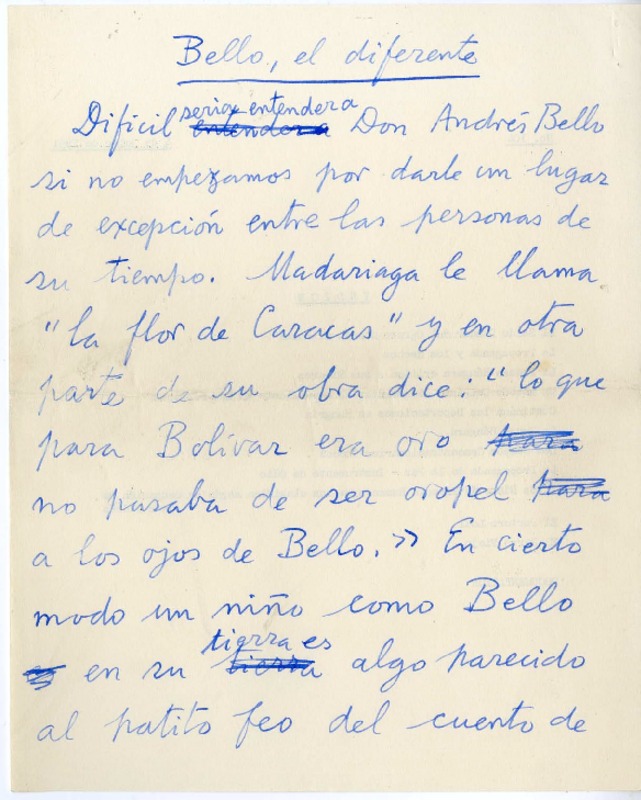 Bello, el diferente
Dificil seria entender a Don Andrés Bello
si no empezamos por darle un lugar
de excepción entre las personas de
su tiempo. Madariaga le llama
"la flor de Caracas" y en otra
parte de su obra dice: "lo que
para Bolívar era oro para
no pasaba de ser oropel para
a los ojos de Bello.>> En cierto
modo un niño como Bello
en su tierra es algo parecido
al patito feo del cuento de